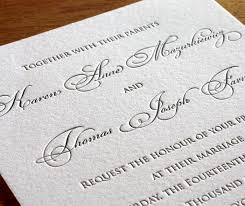 TOGETHER WITH THEIR PARENTS
Karen Anne Mazurkiewicz
AND
Thomas Joseph
REQUEST THE HONOUR OF YOUR
AT THEIR MARRIAGE
DAY, THE FOURTEENTH
THOUSAND